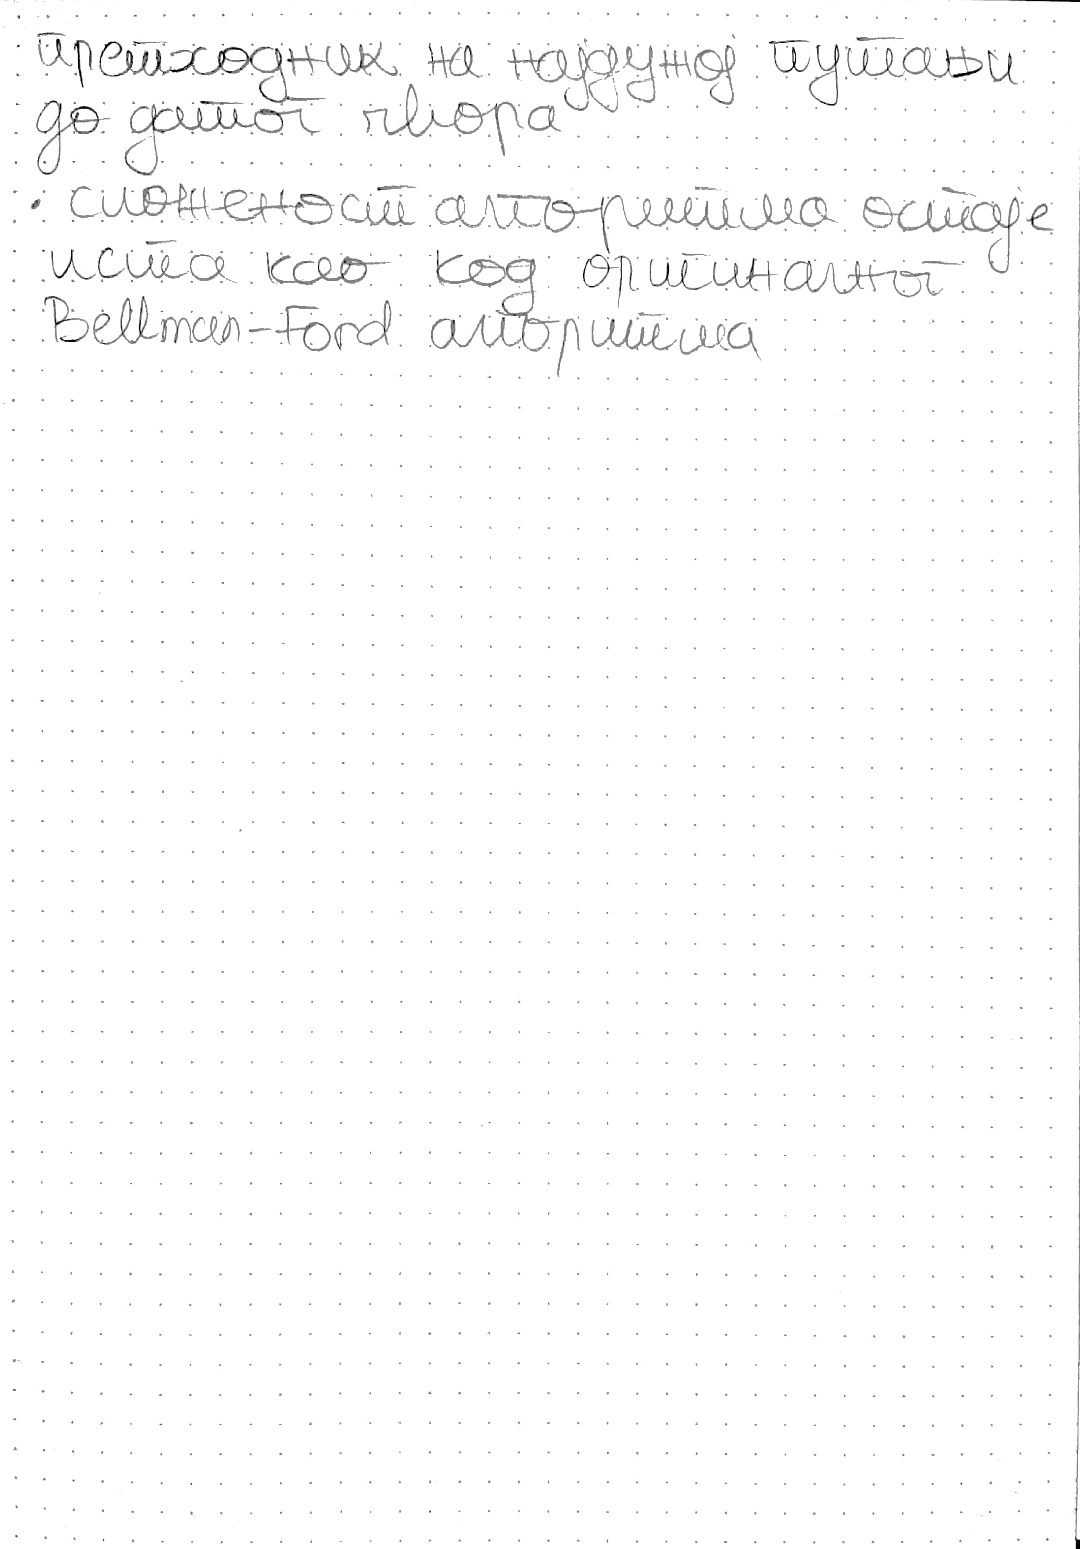 претходник на најдужој путањи
до датог чвора
• сложеност алгоритма остаје
иста као код оригиналног
Bellman-Ford алгоритма